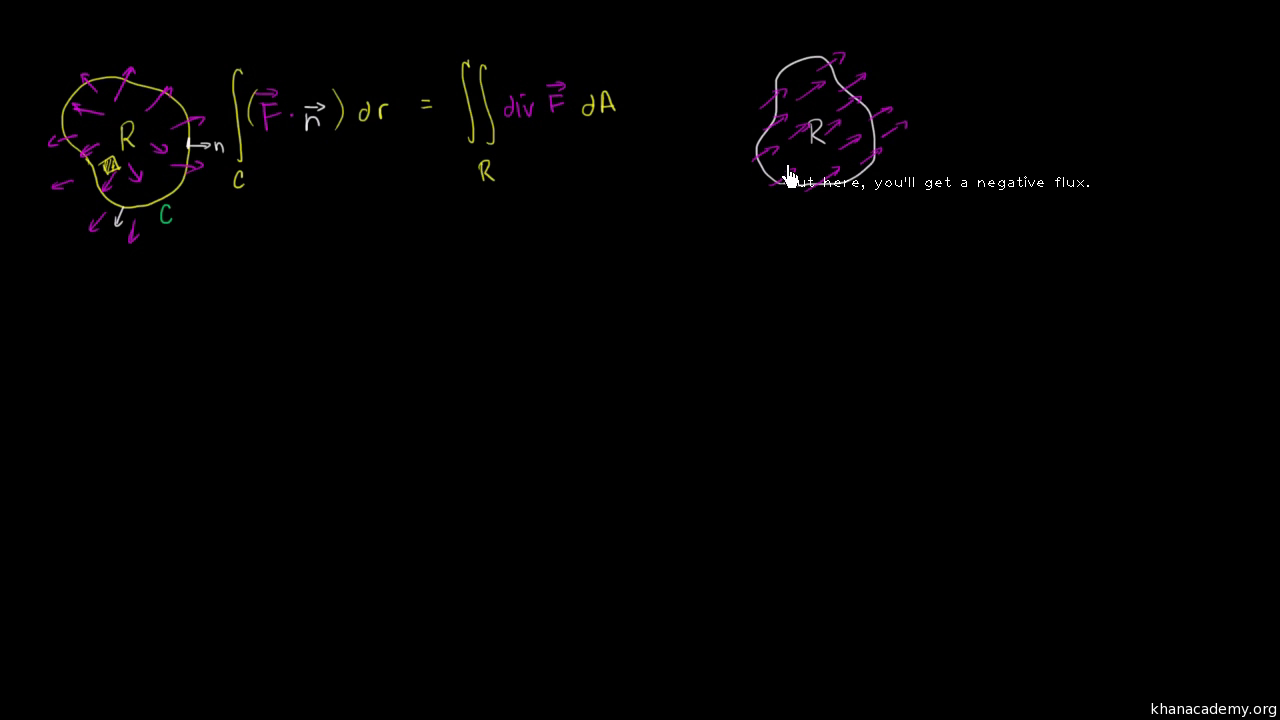 R
n
C
∫_C (F⃗ · n⃗) dr = ∬_R div F⃗ dA
R
but here, you'll get a negative flux.
khanacademy.org